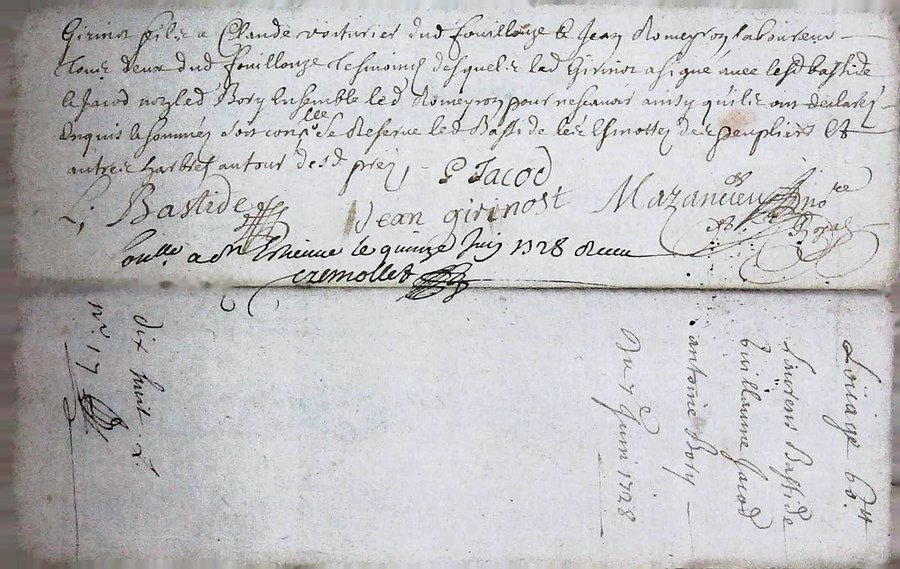 Girinot fils a Claude voiturier dud fouillouze & Jean Romeyron laboureur
tous deux dud fouillouze tesmoins desquels led Girinot a signé avec lesd bastide
& Jacod non led Bory Ensemble led Romeyron pour ne scavoir ainsy qu'ils ont declaré
Enquis & sommés Soit con.lle Se Reserve led Bastide les Esmottes des peupliers Et
autres harbres autour desd prey
G Jacod
L; Bastide
Jean girinost
Mazancieu nore Royal
a St Etienne le quinze Juin 1728 Receu
cremollet
Loüiage 60tt
Laurens Bastide
Guillaume Jacod
antoine Bory
Du 7e Juin 1728
dix huit
no. 17